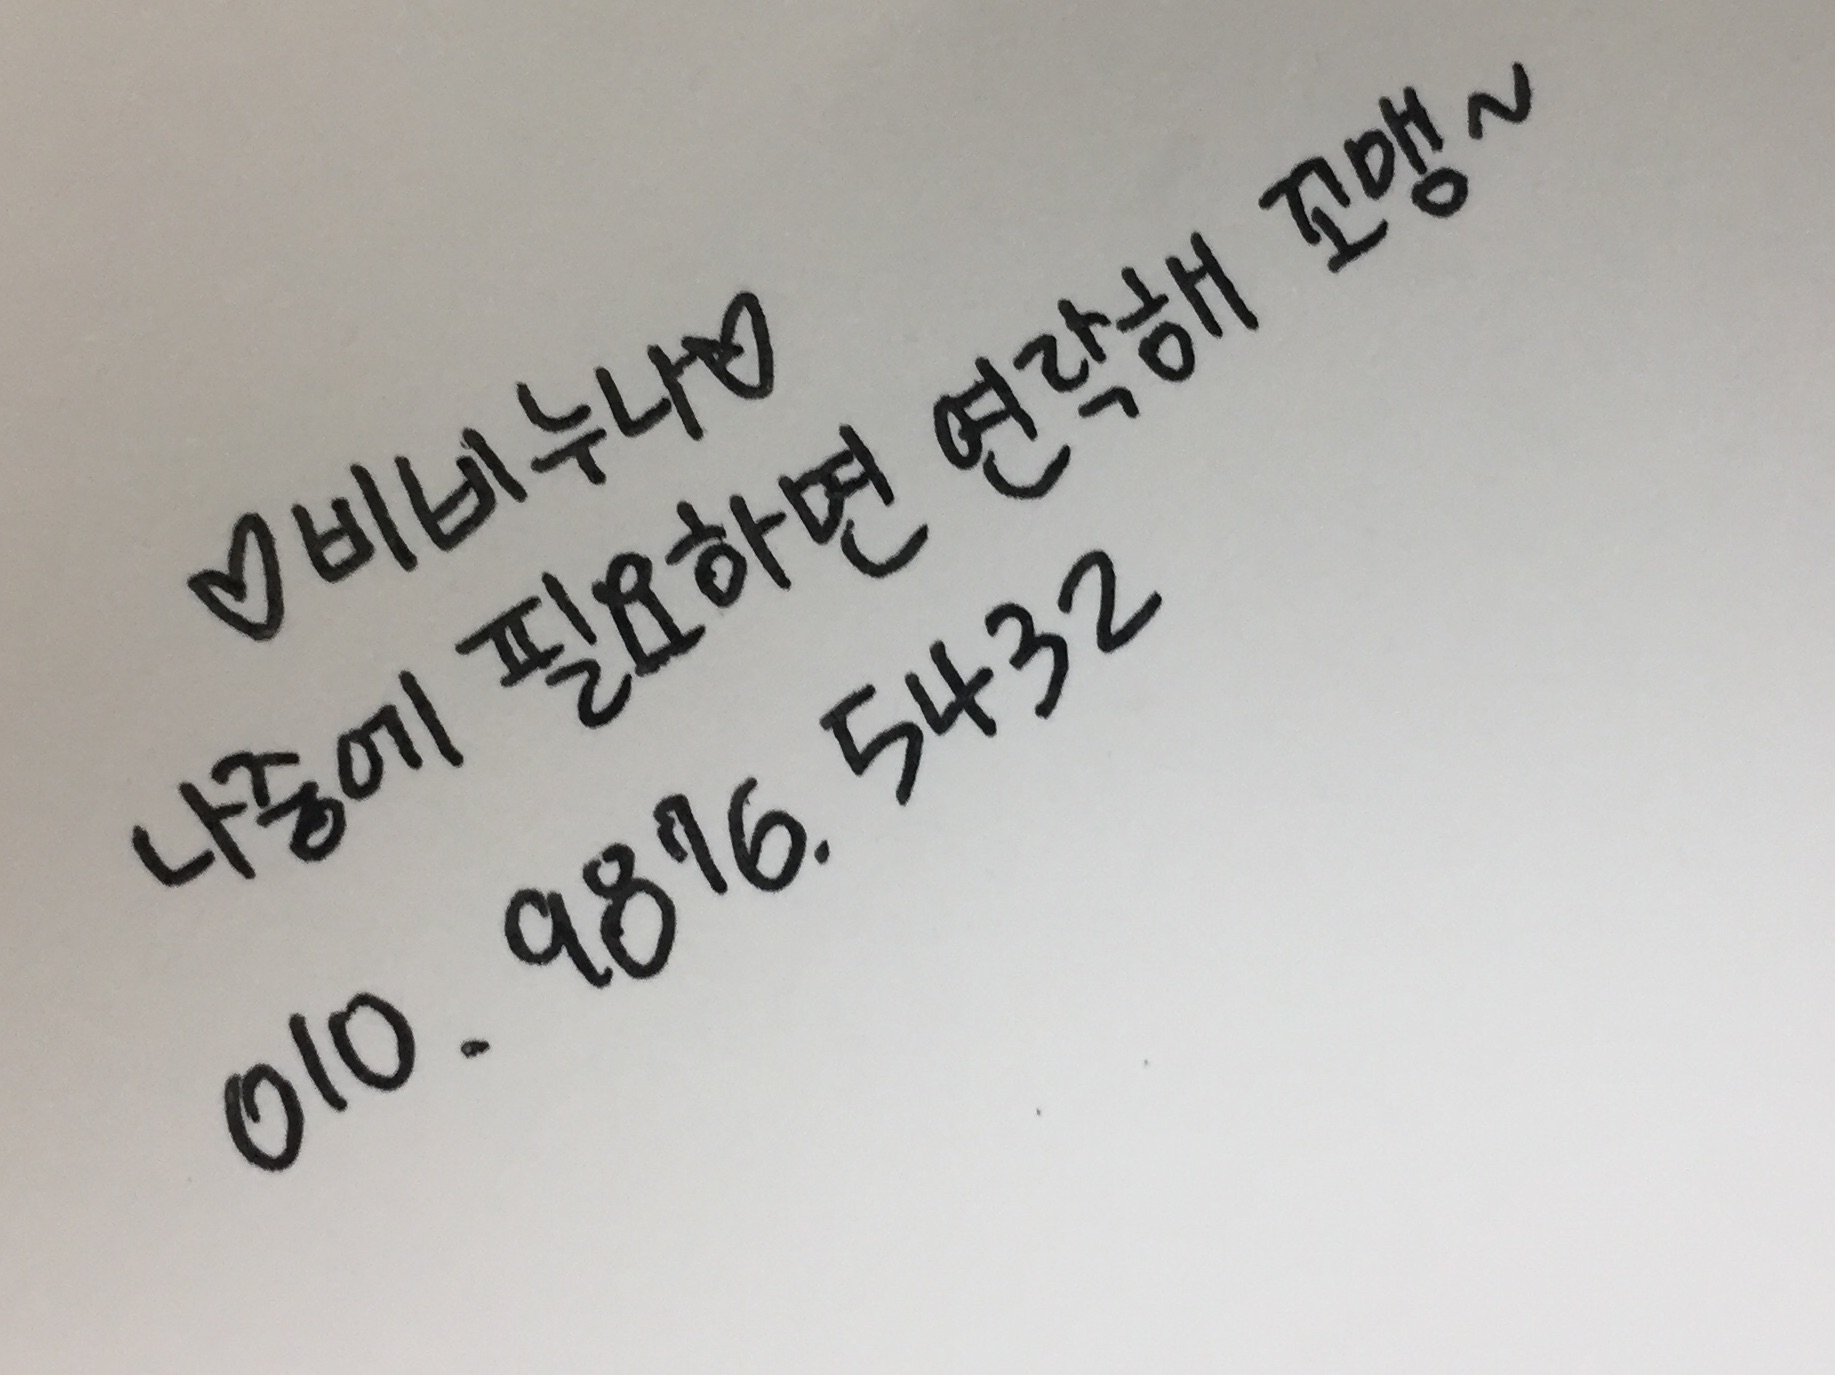 ♡비비누나♡
나중에 필요하면 연락해 꼬맹~
010. 9876. 5432